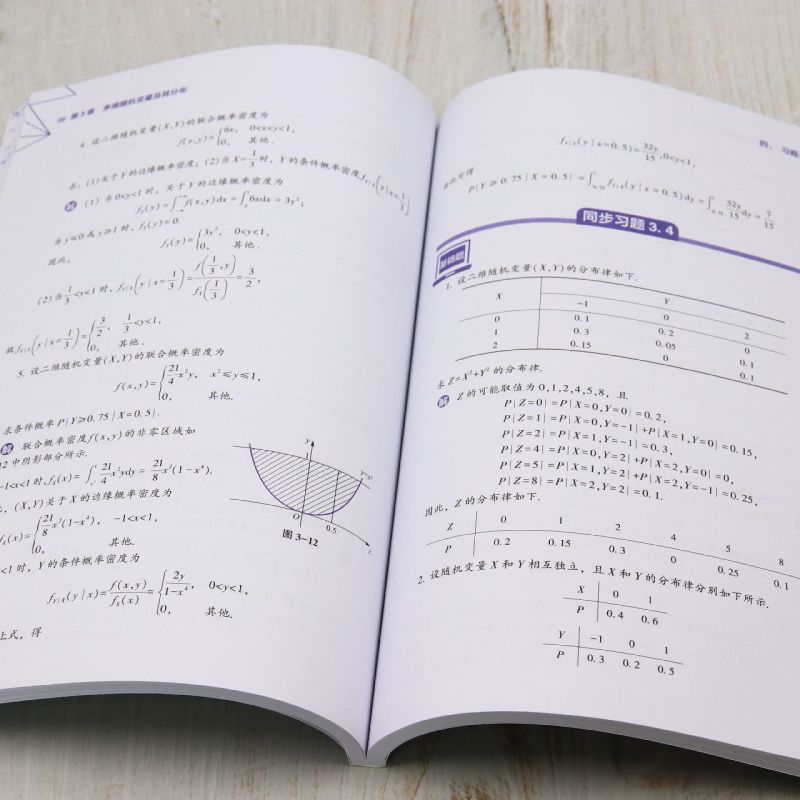 90 第3章 多维随机变量及其分布
4. 设二维随机变量(X,Y)的联合概率密度为
f(x,y)={6x, 0<x<y<1,
0, 其他.
求：(1)关于Y的边缘概率密度；(2)当X=1/3时，Y的条件概率密度f_{Y|X}(y|x=1/3).
解 (1)当0<y<1时，关于Y的边缘概率密度为
f_Y(y)=∫f(x,y)dx=∫6xdx=3y²;
当y≤0或y≥1时，f_Y(y)=0.
因此，
f_Y(y)={3y², 0<y<1,
0, 其他.
(2)当1/3<y<1时，f_{Y|X}(y|x=1/3)=f(1/3,y)/f_X(1/3)=3/2,
故f_{Y|X}(y|x=1/3)={3/2, 1/3<y<1,
0, 其他.
5. 设二维随机变量(X,Y)的联合概率密度为
f(x,y)={21/4 x²y, x²≤y≤1,
0, 其他.
求条件概率P{Y≥0.75|X=0.5}.
解 联合概率密度f(x,y)的非零区域如
12中阴影部分所示.
-1<x<1时,f_X(x)=∫21/4 x²ydy=21/8 x²(1-x⁴).
,(X,Y)关于X的边缘概率密度为
f_X(x)={21/8 x²(1-x⁴), -1<x<1,
0, 其他.
<1时，Y的条件概率密度为
f_{Y|X}(y|x)=f(x,y)/f_X(x)={2y/(1-x⁴), 0<y<1,
0, 其他.
上式，得
y
1
y=x²
O
0.5
x
图3-12
四、习题
f_{Y|X}(y|x=0.5)=32y/15,0<y<1,
由此可得
P{Y≥0.75|X=0.5}=∫f_{Y|X}(y|x=0.5)dy=∫32y/15 dy=7/15
同步习题3.4
基础题
1. 设二维随机变量(X,Y)的分布律如下.
X Y
-1 0 2
0 0.1 0.2 0
1 0.3 0.05 0.1
2 0.15 0 0.1
求Z=X²+Y²的分布律.
解 Z的可能取值为0,1,2,4,5,8，且
P{Z=0}=P{X=0,Y=0}=0.2,
P{Z=1}=P{X=0,Y=-1}+P{X=1,Y=0}=0.15,
P{Z=2}=P{X=1,Y=-1}=0.3,
P{Z=4}=P{X=0,Y=2}+P{X=2,Y=0}=0,
P{Z=5}=P{X=1,Y=2}+P{X=2,Y=-1}=0.25,
P{Z=8}=P{X=2,Y=2}=0.1.
因此，Z的分布律如下.
Z 0 1 2 4 5 8
P 0.2 0.15 0.3 0 0.25 0.1
2. 设随机变量X和Y相互独立，且X和Y的分布律分别如下所示.
X 0 1
P 0.4 0.6
Y -1 0 1
P 0.3 0.2 0.5